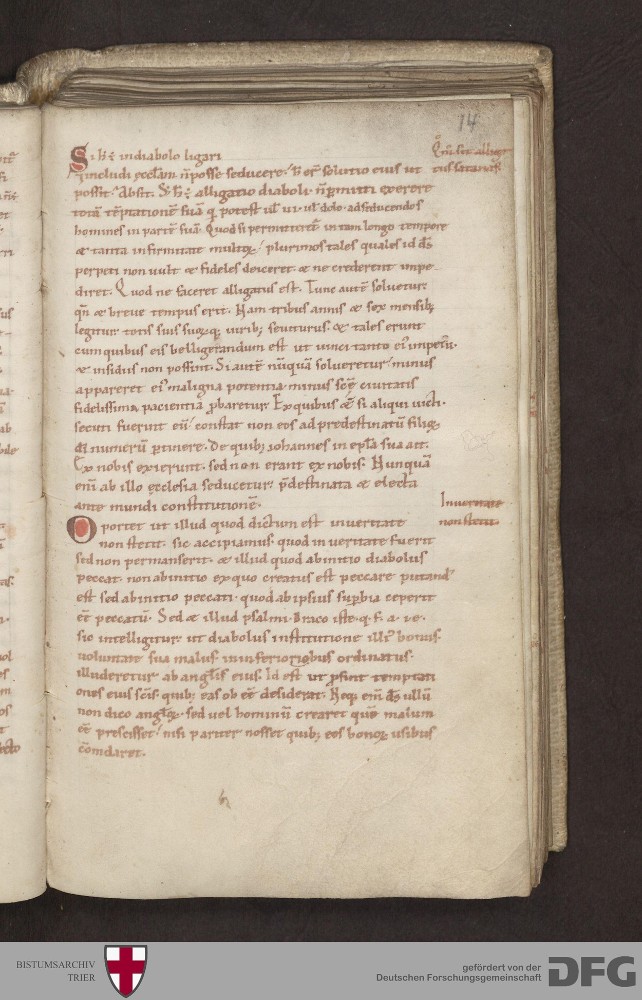 14
Si h̄ ē in diabolo ligari
ēt includi ęccl'am n̄ posse seducere. h̄ er̄ solutio eius ut
possit. Absit. S; h̄ ē alligatio diaboli. n̄ p̄mitti exerere
totā tēptationē suā q̄ potest ul' ui. ul' dolo. ad seducendos
homines in partē suā. Quod si permitteret̄ in tam longo tempore
& tanta infirmitate multoꝝ. plurimos tales quales id d̄s
perpeti non uult & fideles deiceret. & ne crederent impe-
diret. Quod ne faceret alligatus est. Tunc autē soluetur
qn̄ & breue tempus erit. Nam tribus annis & sex mensib;
legitur totis suis suorꝗ; uirib; seuiturus. & tales erunt
cum quibus eis belligerandum est ut uinci tanto ei' impetu.
& insidiis non possint. Si autē nūquā solueretur. minus
appareret ei' maligna potentia. minus scē ciuitatis
fidelissima pacientia p̄baretur. Ex quibus & si aliqui uicti.
secuti fuerint eū. constat non eos ad predestinatū filioꝝ
d̄i numerū p̄tinere. De quib; iohannes in epl'a sua ait.
Ex nobis exierunt. sed non erant ex nobis. Nunquā
eni ab illo ęcclesia seducetur p̄destinata & electa
ante mundi constitutionē.
Oportet ut illud quod dictum est in ueritate
In ueritate
non stetit. sic accipiamus. quod in ueritate fuerit
non stetit.
sed non permanserit. & illud quod ab initio diabolus
peccat. non ab initio ex quo creatus est peccare putand'
est sed ab initio peccati. quod ab ipsius sup̄bia ceperit
eē peccatū. Sed & illud psalmi. Draco iste. q. f. a. i. e.
sic intelligitur. ut diabolus institutione illi' bonus.
uoluntate sua malus. in inferioribus ordinatus.
illuderetur ab anglis eius. Id est ut p̄sint temptati
ones eius scīs quib; eas ob eē desiderat. Neq; em̄ d̄s ullū
non dico angloꝝ. sed uel hominū crearet quē malum
eē prescisset. nisi pariter nosset quib; eos bonoꝝ usibus
cōmdaret.
BISTUMSARCHIV
TRIER
gefördert von der
Deutschen Forschungsgemeinschaft
DFG